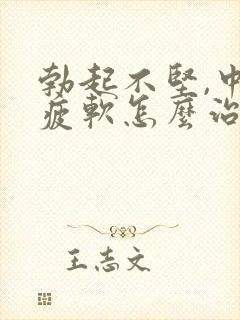 勃起不堅,中
疲軟怎麼治
王志文